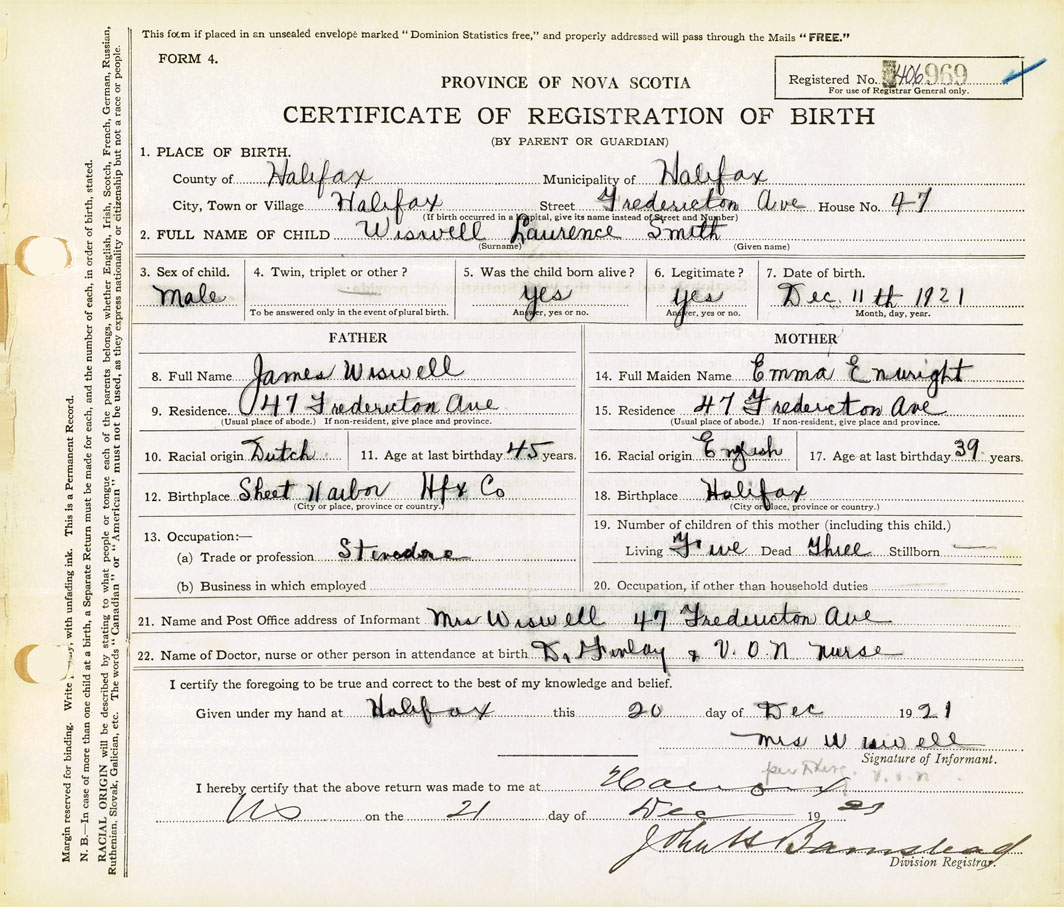 This form if placed in an unsealed envelope marked "Dominion Statistics free," and properly addressed will pass through the Mails "FREE."
FORM 4.
Registered No. 406969
For use of Registrar General only.
PROVINCE OF NOVA SCOTIA
CERTIFICATE OF REGISTRATION OF BIRTH
(BY PARENT OR GUARDIAN)
1. PLACE OF BIRTH.
County of Halifax Municipality of Halifax
City, Town or Village Halifax Street Fredericton Ave House No. 47
(If birth occurred in a hospital, give its name instead of Street and Number)
2. FULL NAME OF CHILD Wiswell Laurence Smith
(Surname) (Given name)
3. Sex of child. 4. Twin, triplet or other? 5. Was the child born alive? 6. Legitimate? 7. Date of birth.
Male — yes yes Dec 11th 1921
To be answered only in the event of plural birth. Answer, yes or no. Answer, yes or no. Month, day, year.
FATHER MOTHER
8. Full Name James Wiswell 14. Full Maiden Name Emma Enwright
9. Residence 47 Fredericton Ave 15. Residence 47 Fredericton Ave
(Usual place of abode.) If non-resident, give place and province. (Usual place of abode.) If non-resident, give place and province.
10. Racial origin Dutch 11. Age at last birthday 45 years. 16. Racial origin English 17. Age at last birthday 39 years.
12. Birthplace Sheet Harbor Hfx Co 18. Birthplace Halifax
(City or place, province or country.) (City or place, province or country.)
13. Occupation:— 19. Number of children of this mother (including this child.)
(a) Trade or profession Stevedore Living Five Dead Three Stillborn —
(b) Business in which employed 20. Occupation, if other than household duties
21. Name and Post Office address of Informant Mrs Wiswell 47 Fredericton Ave
22. Name of Doctor, nurse or other person in attendance at birth D. Finlay & V. O. N nurse
I certify the foregoing to be true and correct to the best of my knowledge and belief.
Given under my hand at Halifax this 20 day of Dec 1921
Mrs Wiswell
Signature of Informant.
per V.O.N
I hereby certify that the above return was made to me at
NS on the 21 day of Dec 19
John H Barnstead
Division Registrar.
Margin reserved for binding. Write with unfading ink. This is a Permanent Record.
N. B.—In case of more than one child at a birth, a Separate Return must be made for each, and the number of each, in order of birth, stated.
RACIAL ORIGIN will be described by stating to what people or tongue each of the parents belongs, whether English, Irish, Scotch, French, German, Russian,
Ruthenian, Slovak, Galician, etc. The words "Canadian" or "American" must not be used, as they express nationality or citizenship but not a race or people.